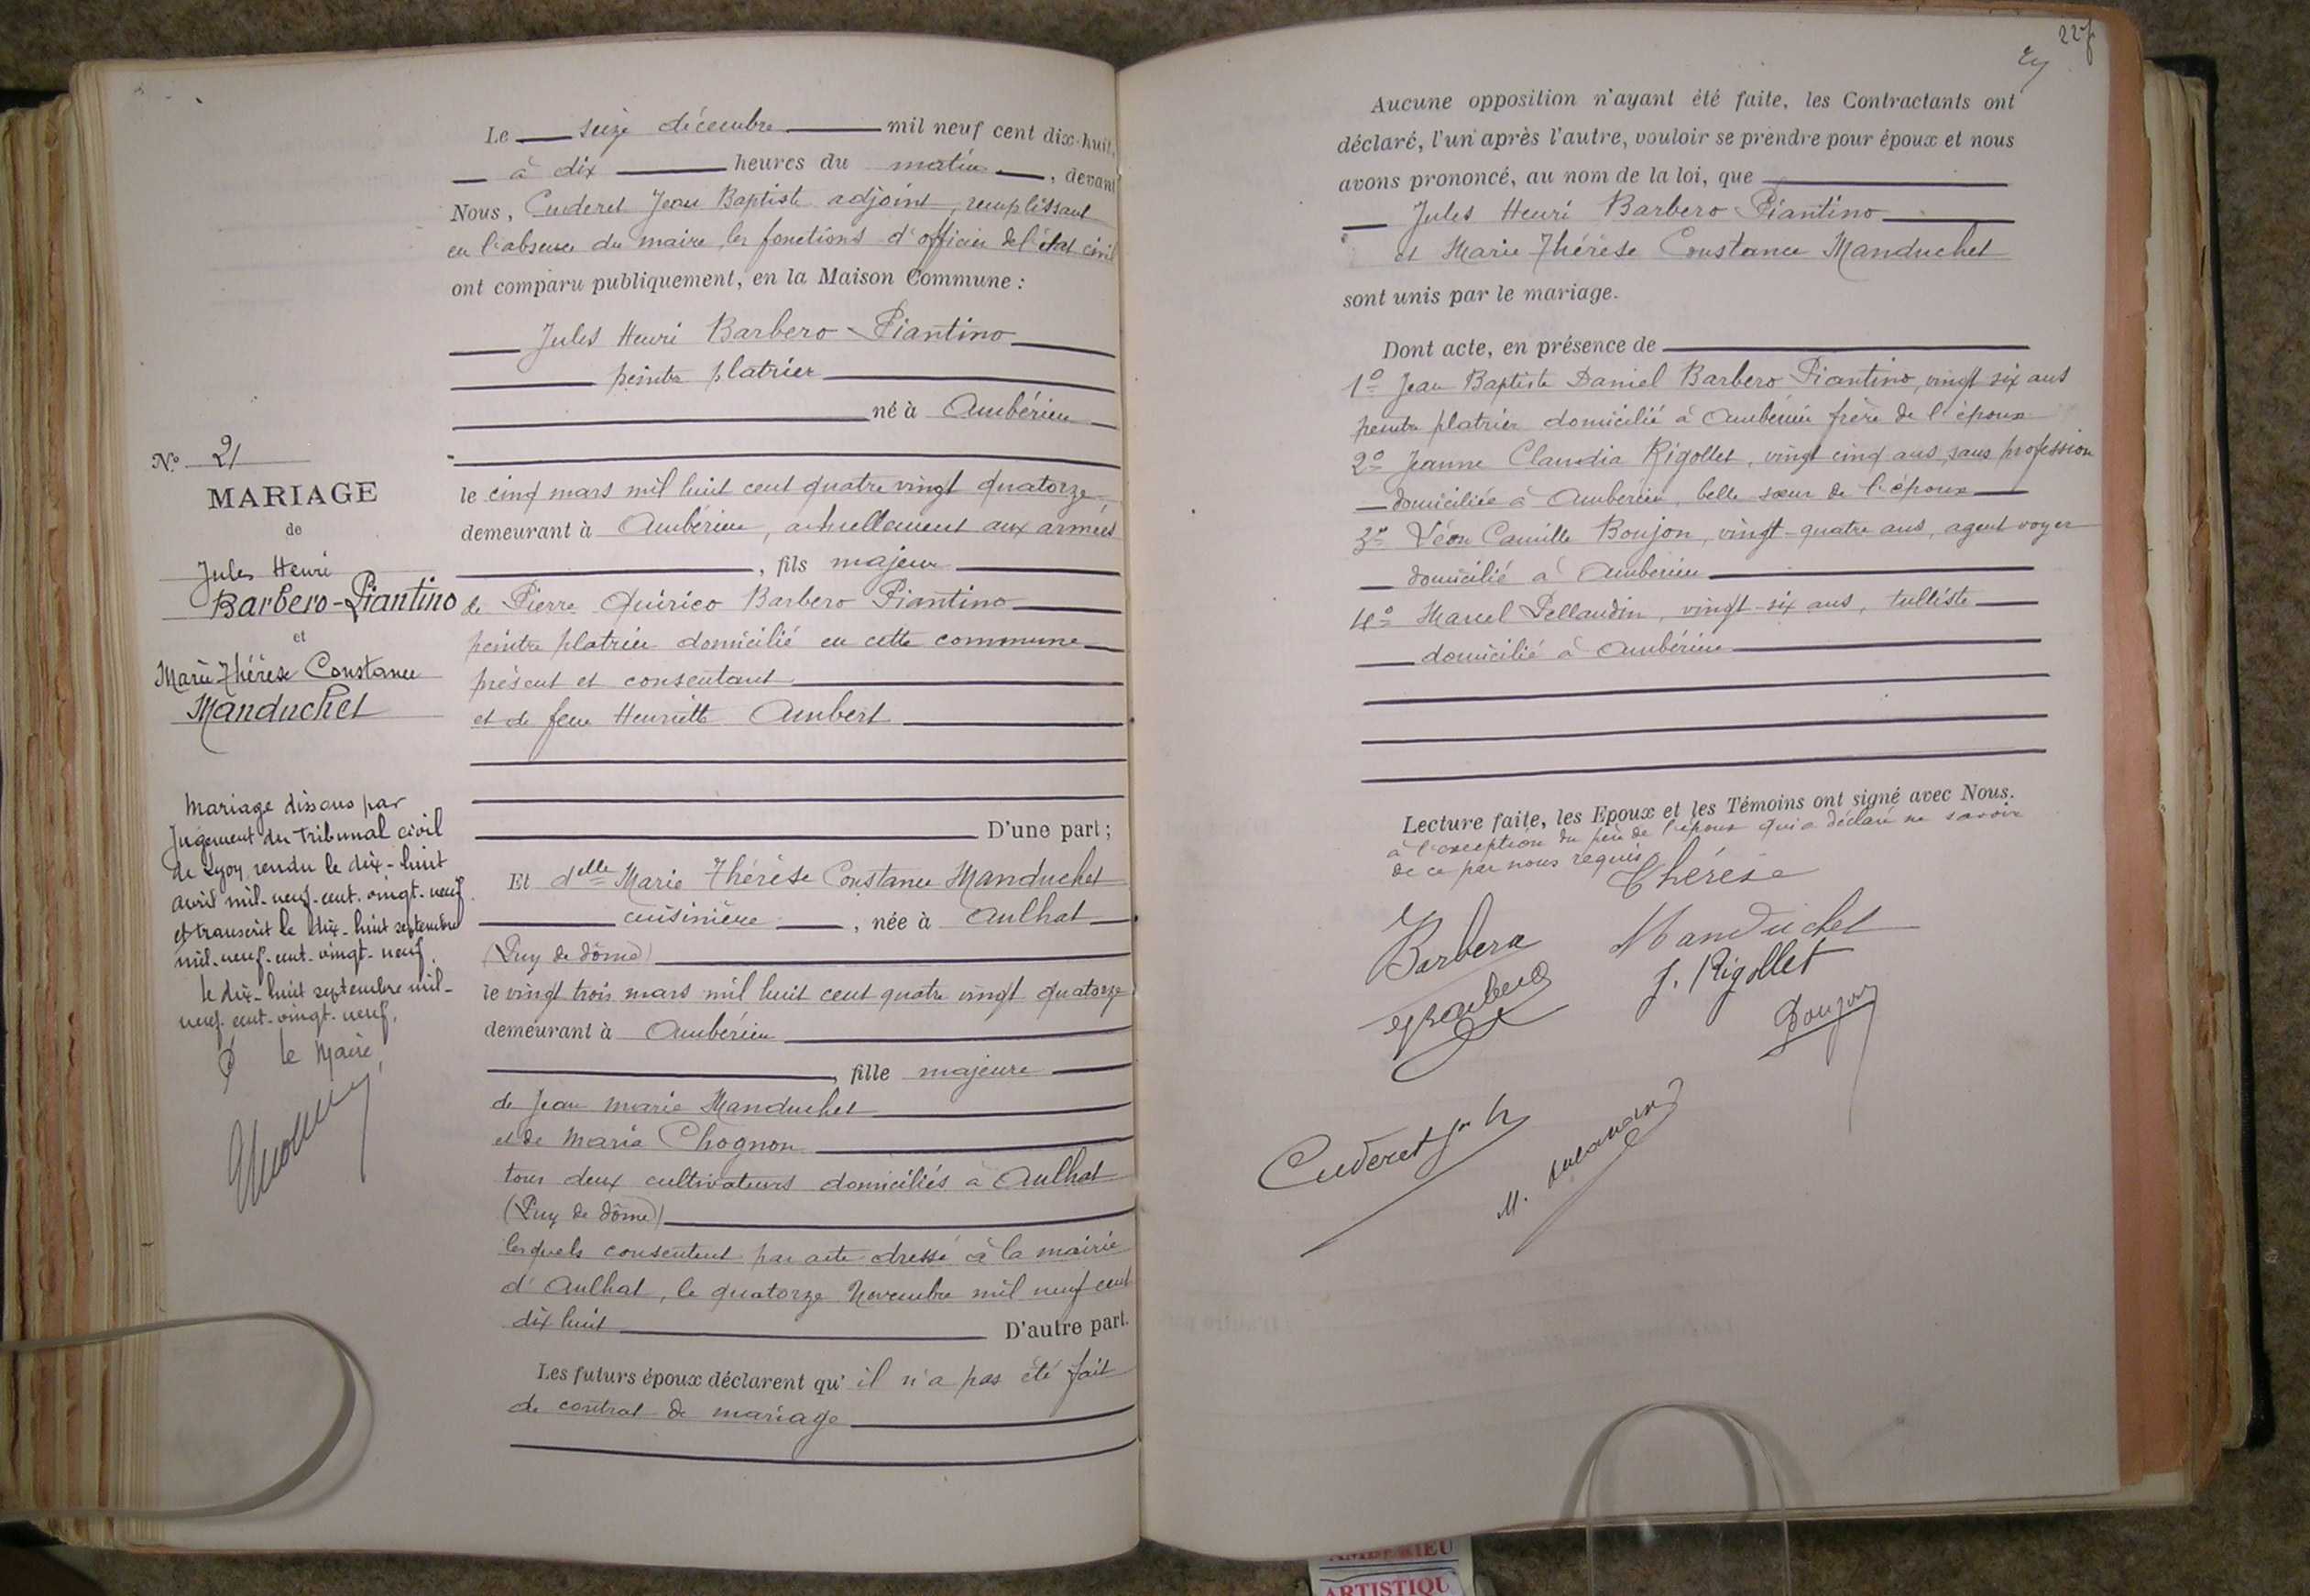 N° 21
MARIAGE
de
Jules Henri
Barbero-Piantino
et
Marie Thérèse Constance
Manduchet
Mariage dissous par
Jugement du Tribunal civil
de Lyon, rendu le dix-huit
avril mil-neuf-cent-vingt-neuf
et transcrit le dix-huit septembre
mil-neuf-cent-vingt-neuf.
le dix-huit septembre mil-
neuf-cent-vingt-neuf.
le Maire,
Le seize décembre mil neuf cent dix-huit,
à dix heures du matin, devant
Nous, Cuderet Jean Baptiste adjoint, remplissant
en l'absence du maire, les fonctions d'officier de l'état civil
ont comparu publiquement, en la Maison Commune :
Jules Henri Barbero-Piantino
peintre platrier
né à Ambérieu
le cinq mars mil huit cent quatre vingt quatorze,
demeurant à Ambérieu, actuellement aux armées
, fils majeur
de Pierre Quirico Barbero Piantino
peintre platrier domicilié en cette commune
présent et consentant
et de feue Henriette Ambert
D'une part ;
Et delle Marie Thérèse Constance Manduchet
cuisinière, née à Aulhat
(Puy de dôme)
le vingt trois mars mil huit cent quatre vingt quatorze
demeurant à Ambérieu
, fille majeure
de Jean marie Manduchet
et de Maria Chognon
tous deux cultivateurs domiciliés à Aulhat
(Puy de dôme)
lesquels consentent par acte dressé à la mairie
d'Aulhat, le quatorze Novembre mil neuf cent
dix huit D'autre part.
Les futurs époux déclarent qu'il n'a pas été fait
de contrat de mariage
227
Aucune opposition n'ayant été faite, les Contractants ont
déclaré, l'un après l'autre, vouloir se prendre pour époux et nous
avons prononcé, au nom de la loi, que
Jules Henri Barbero-Piantino
et Marie Thérèse Constance Manduchet
sont unis par le mariage.
Dont acte, en présence de
1° Jean Baptiste Daniel Barbero Piantino, vingt six ans
peintre platrier domicilié à Ambérieu frère de l'époux
2° Jeanne Claudia Rigollet, vingt cinq ans, sans profession
domiciliée à Ambérieu, belle sœur de l'époux
3° Léon Camille Boujon, vingt-quatre ans, agent voyer
domicilié à Ambérieu
4° Marcel Pellaudin, vingt-six ans, tulliste
domicilié à Ambérieu
Lecture faite, les Epoux et les Témoins ont signé avec Nous.
à l'exception du père de l'époux qui a déclaré ne savoir
de ce par nous requis
Thérèse
Barbero
Manduchet
J. Rigollet
Boujon
Cuderet Jn
M.
AMBERIEU
ARTISTIQU